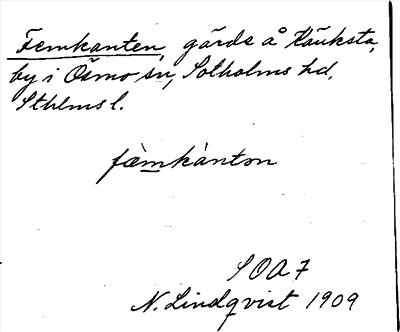 Femkanten, gärde å Käuksta,
by i Ösmo sn, Sotholms hd,
Sthlms l.
fæ̀mkànton
SOA 7
N. Lindqvist 1909